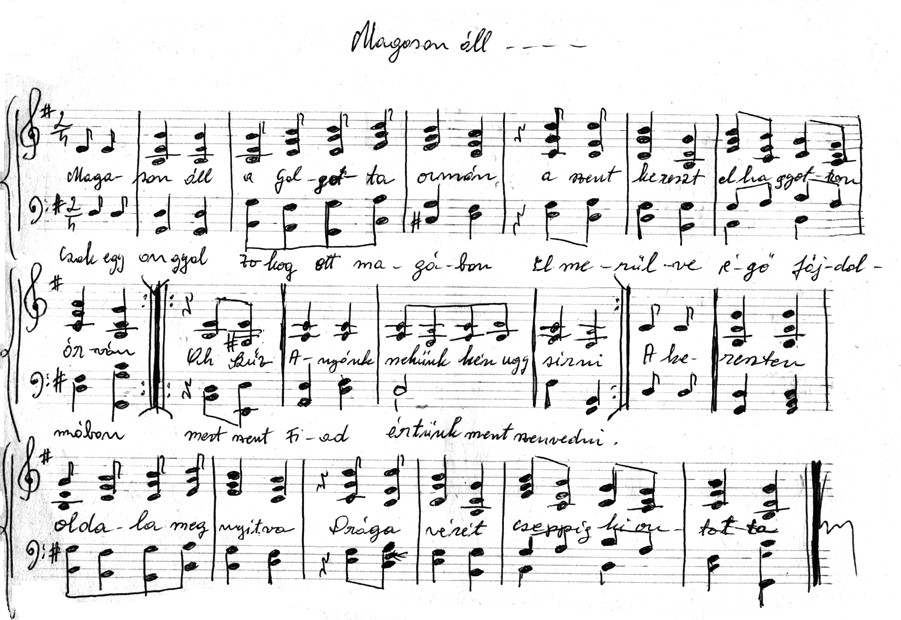 Magoson áll ----
Maga-son áll a Gol-got-ta ormán, a szent kereszt elhagyot-ton
Csak egy an gyal zo-kog ott ma-gá-ban El me-rül-ve é-gő fájdal-
ór-ván Oh Szűz A-nyánk nekünk kén ugy sirni A ke-reszten
mában mert szent Fi-ad értünk ment szenvedni.
olda-la meg nyitva Drága vérét cseppig ki on-tot-ta